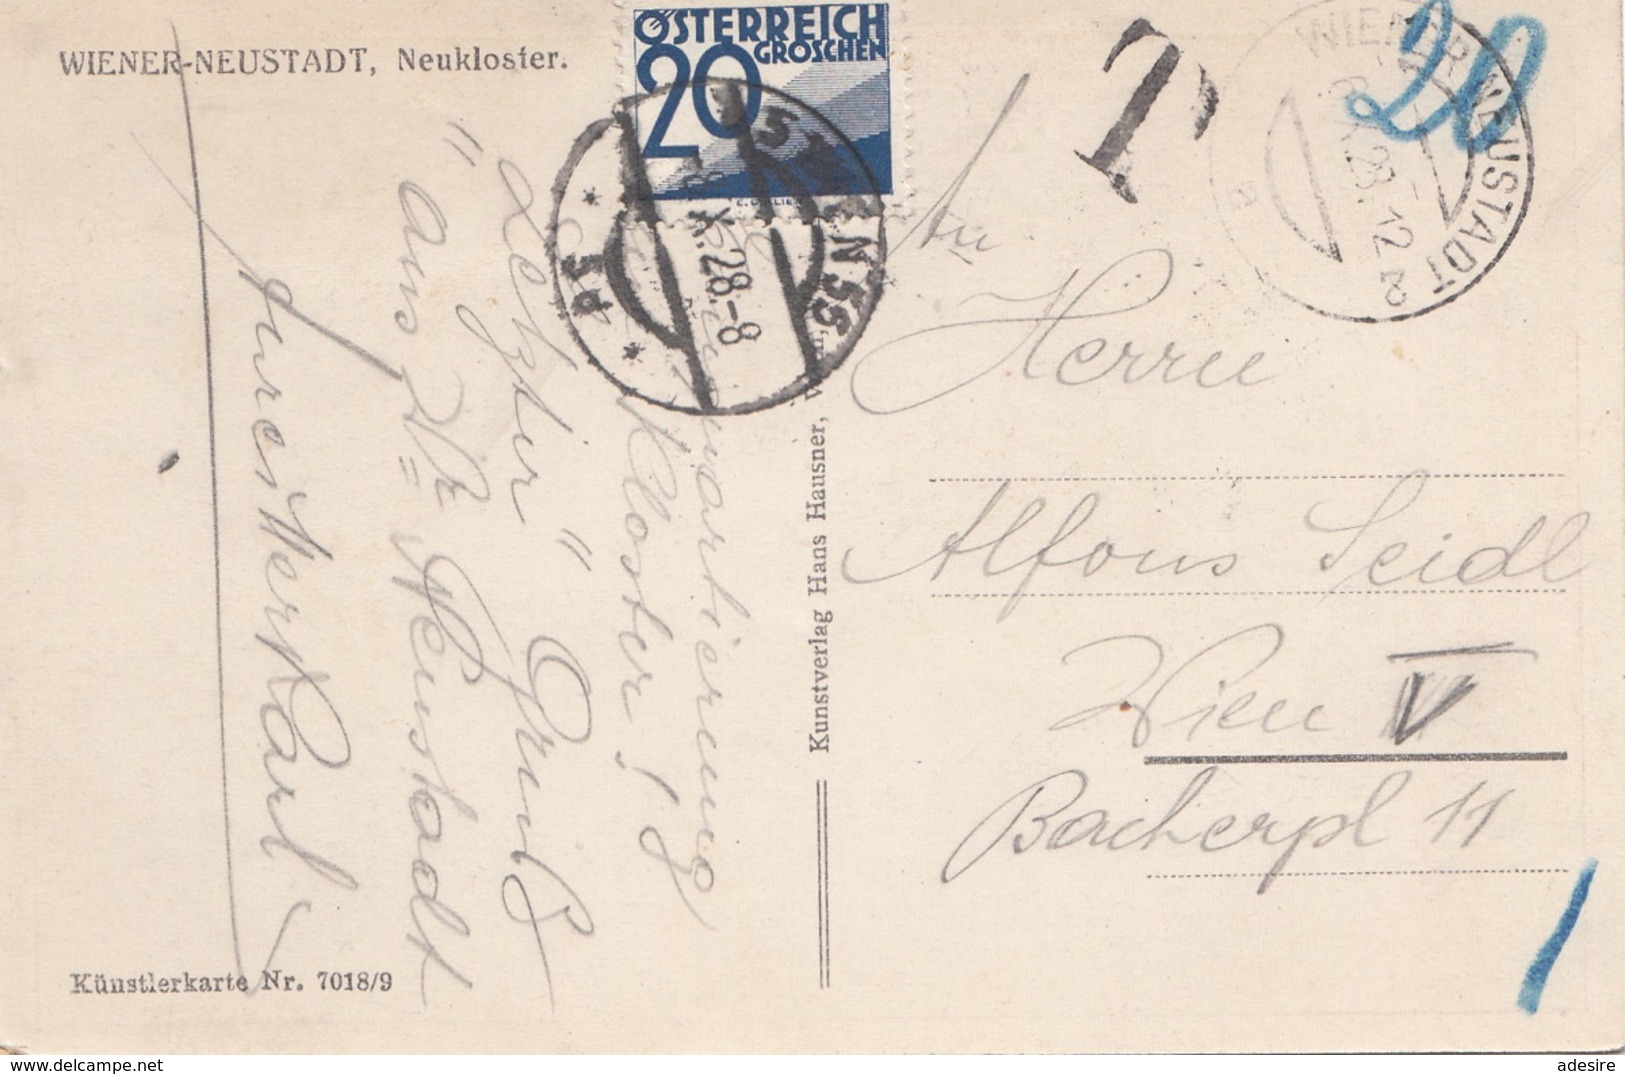 WIENER-NEUSTADT, Neukloster.
ÖSTERREICH
20 GROSCHEN
T
20
WIENER NEUSTADT
.28.-12
2a
55
X.28-8
An
Herrn
Alfons Seidl
Wien V
Bacherpl 11
Kunstverlag Hans Hausner,
Kloster!
"Letzter" Gruß
aus Wr Neustadt
Karl
Künstlerkarte Nr. 7018/9
adesire